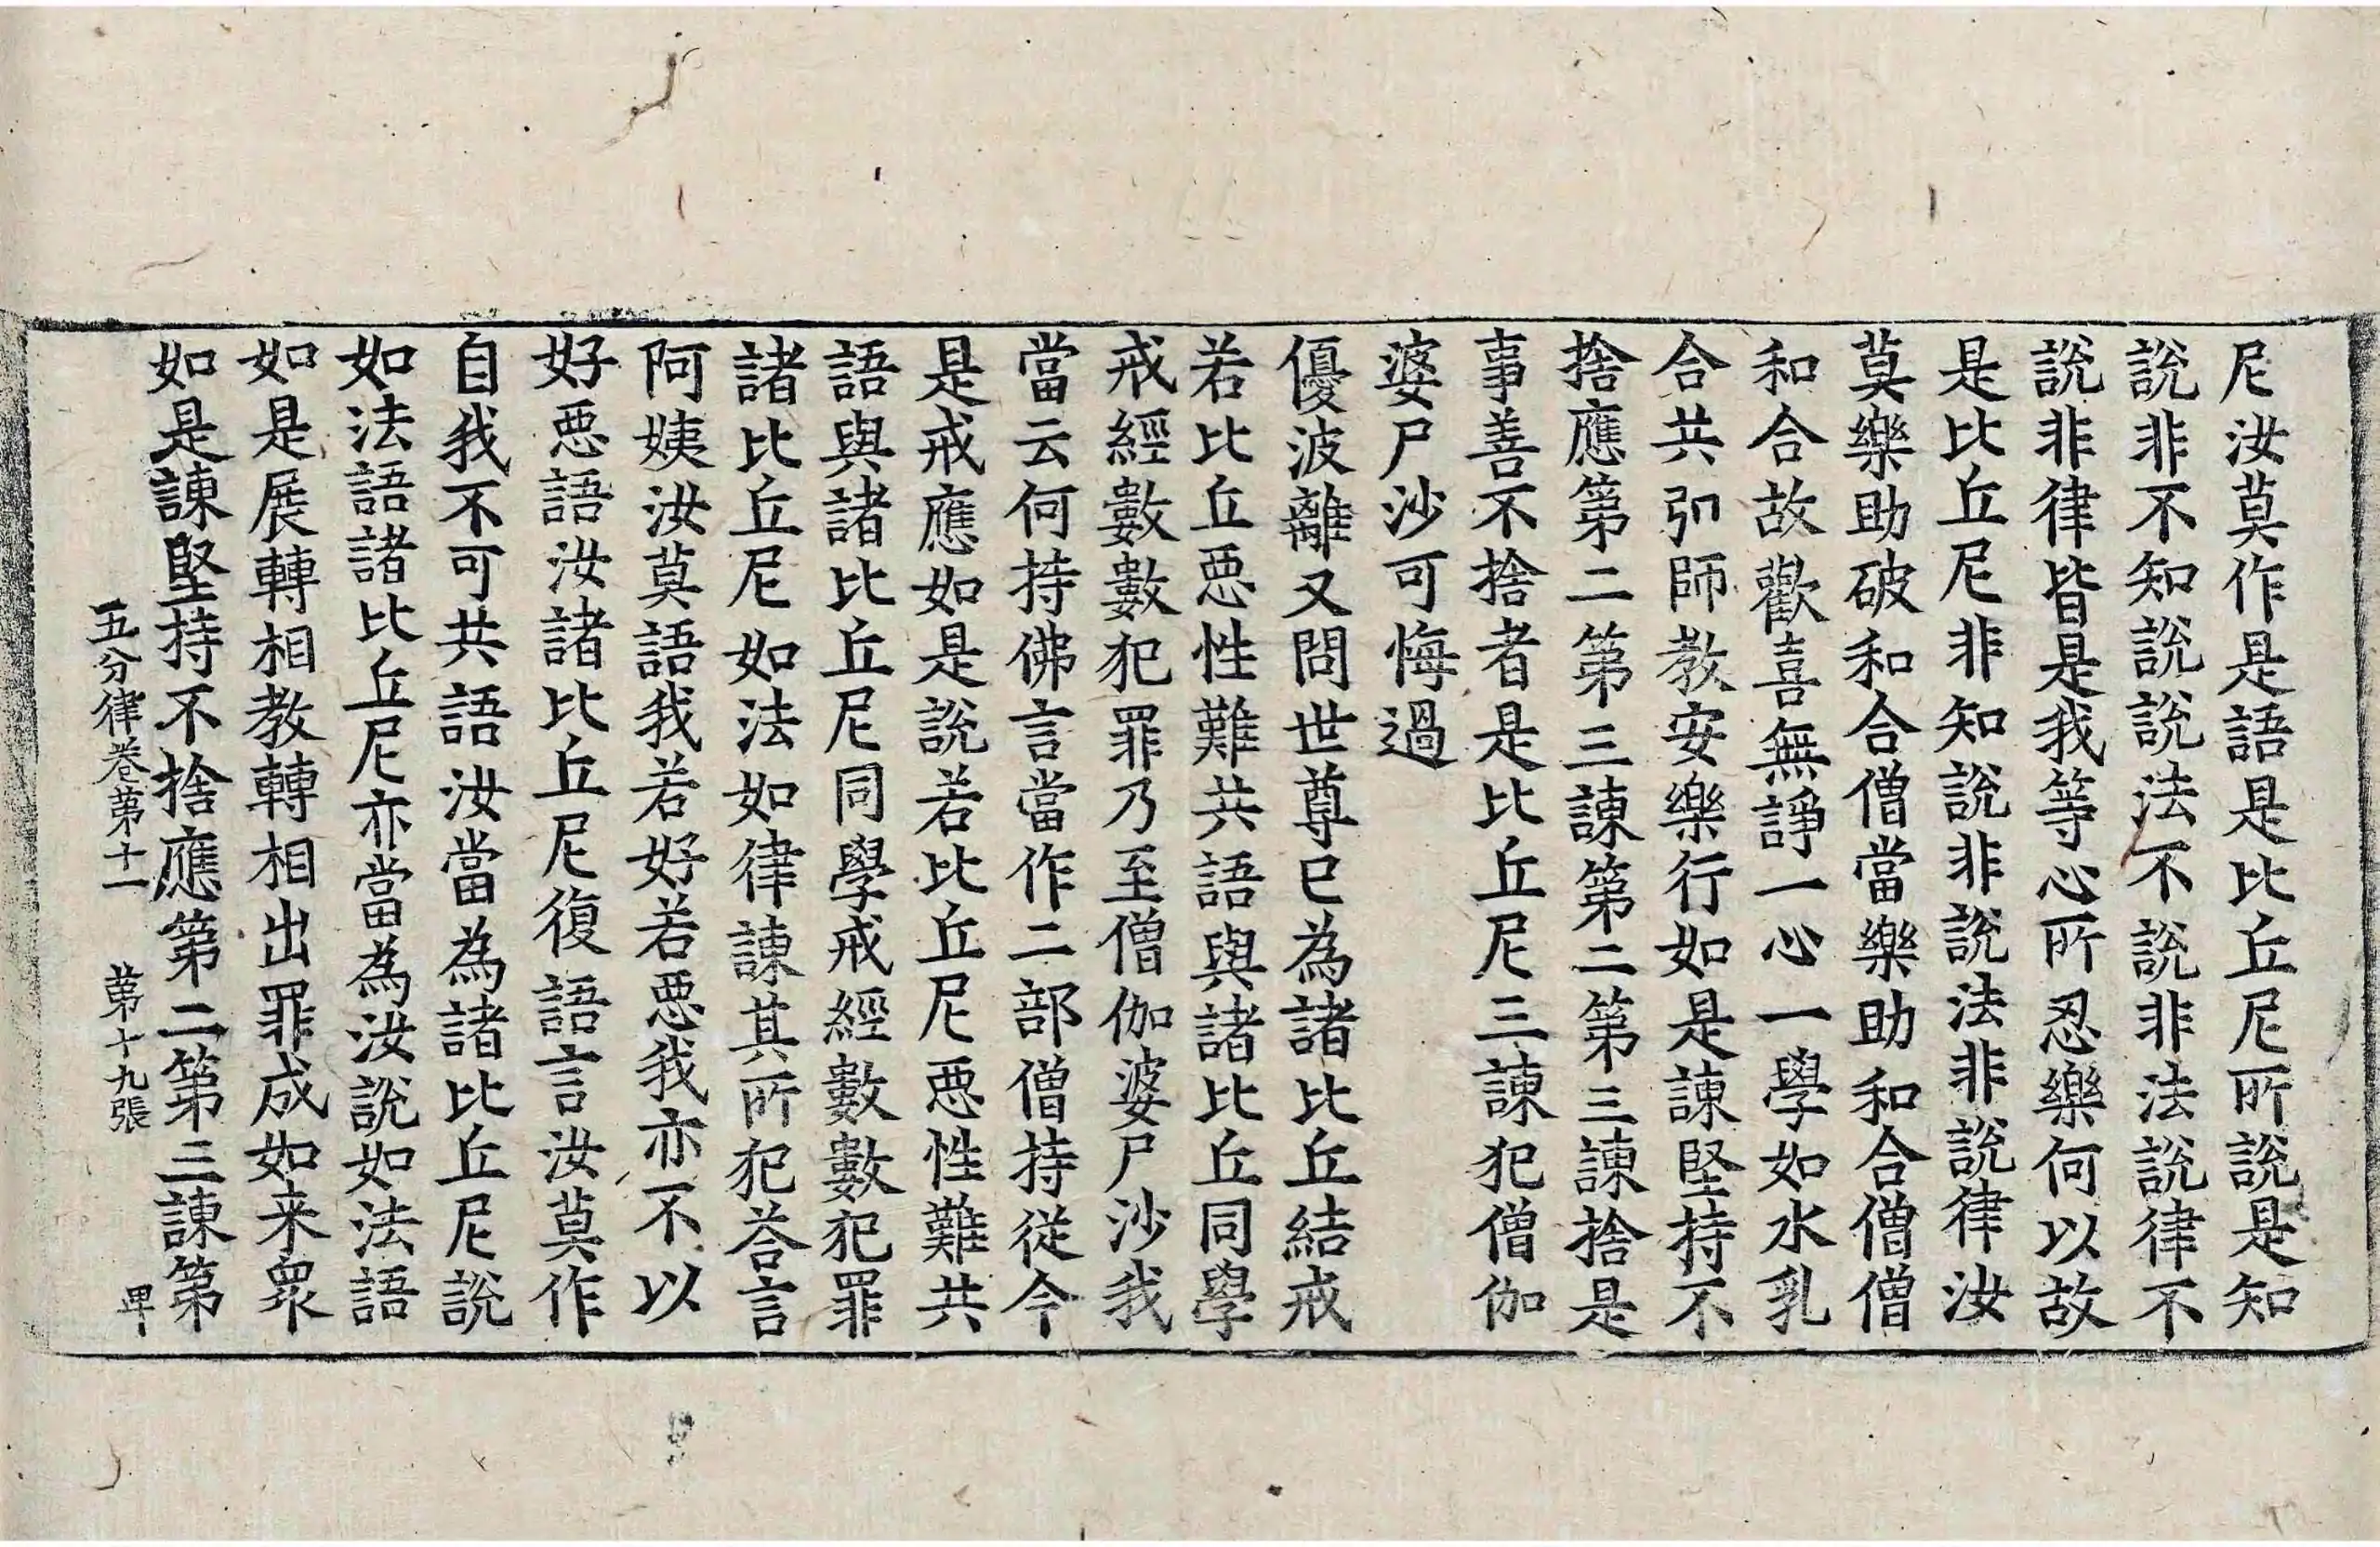 尼汝莫作是語是比丘尼所說是知
說非不知說說法不說非法說律不
說非律皆是我等心所忍樂何以故
是比丘尼非知說非說法非說律汝
莫樂助破和合僧當樂助和合僧僧
和合故歡喜無諍一心一學如水乳
合共弘師教安樂行如是諫堅持不
捨應第二第三諫第二第三諫捨是
事善不捨者是比丘尼三諫犯僧伽
婆尸沙可悔過
優波離又問世尊已為諸比丘結戒
若比丘惡性難共語與諸比丘同學
戒經數數犯罪乃至僧伽婆尸沙我
當云何持佛言當作二部僧持從今
是戒應如是說若比丘尼惡性難共
語與諸比丘尼同學戒經數數犯罪
諸比丘尼如法如律諫其所犯荅言
阿姨汝莫語我若好若惡我亦不以
好惡語汝諸比丘尼復語言汝莫作
自我不可共語汝當為諸比丘尼說
如法語諸比丘尼亦當為汝說如法語
如是展轉相教轉相出罪成如来眾
如是諫堅持不捨應第二第三諫第
五分律卷苐十一 苐十九張 卑